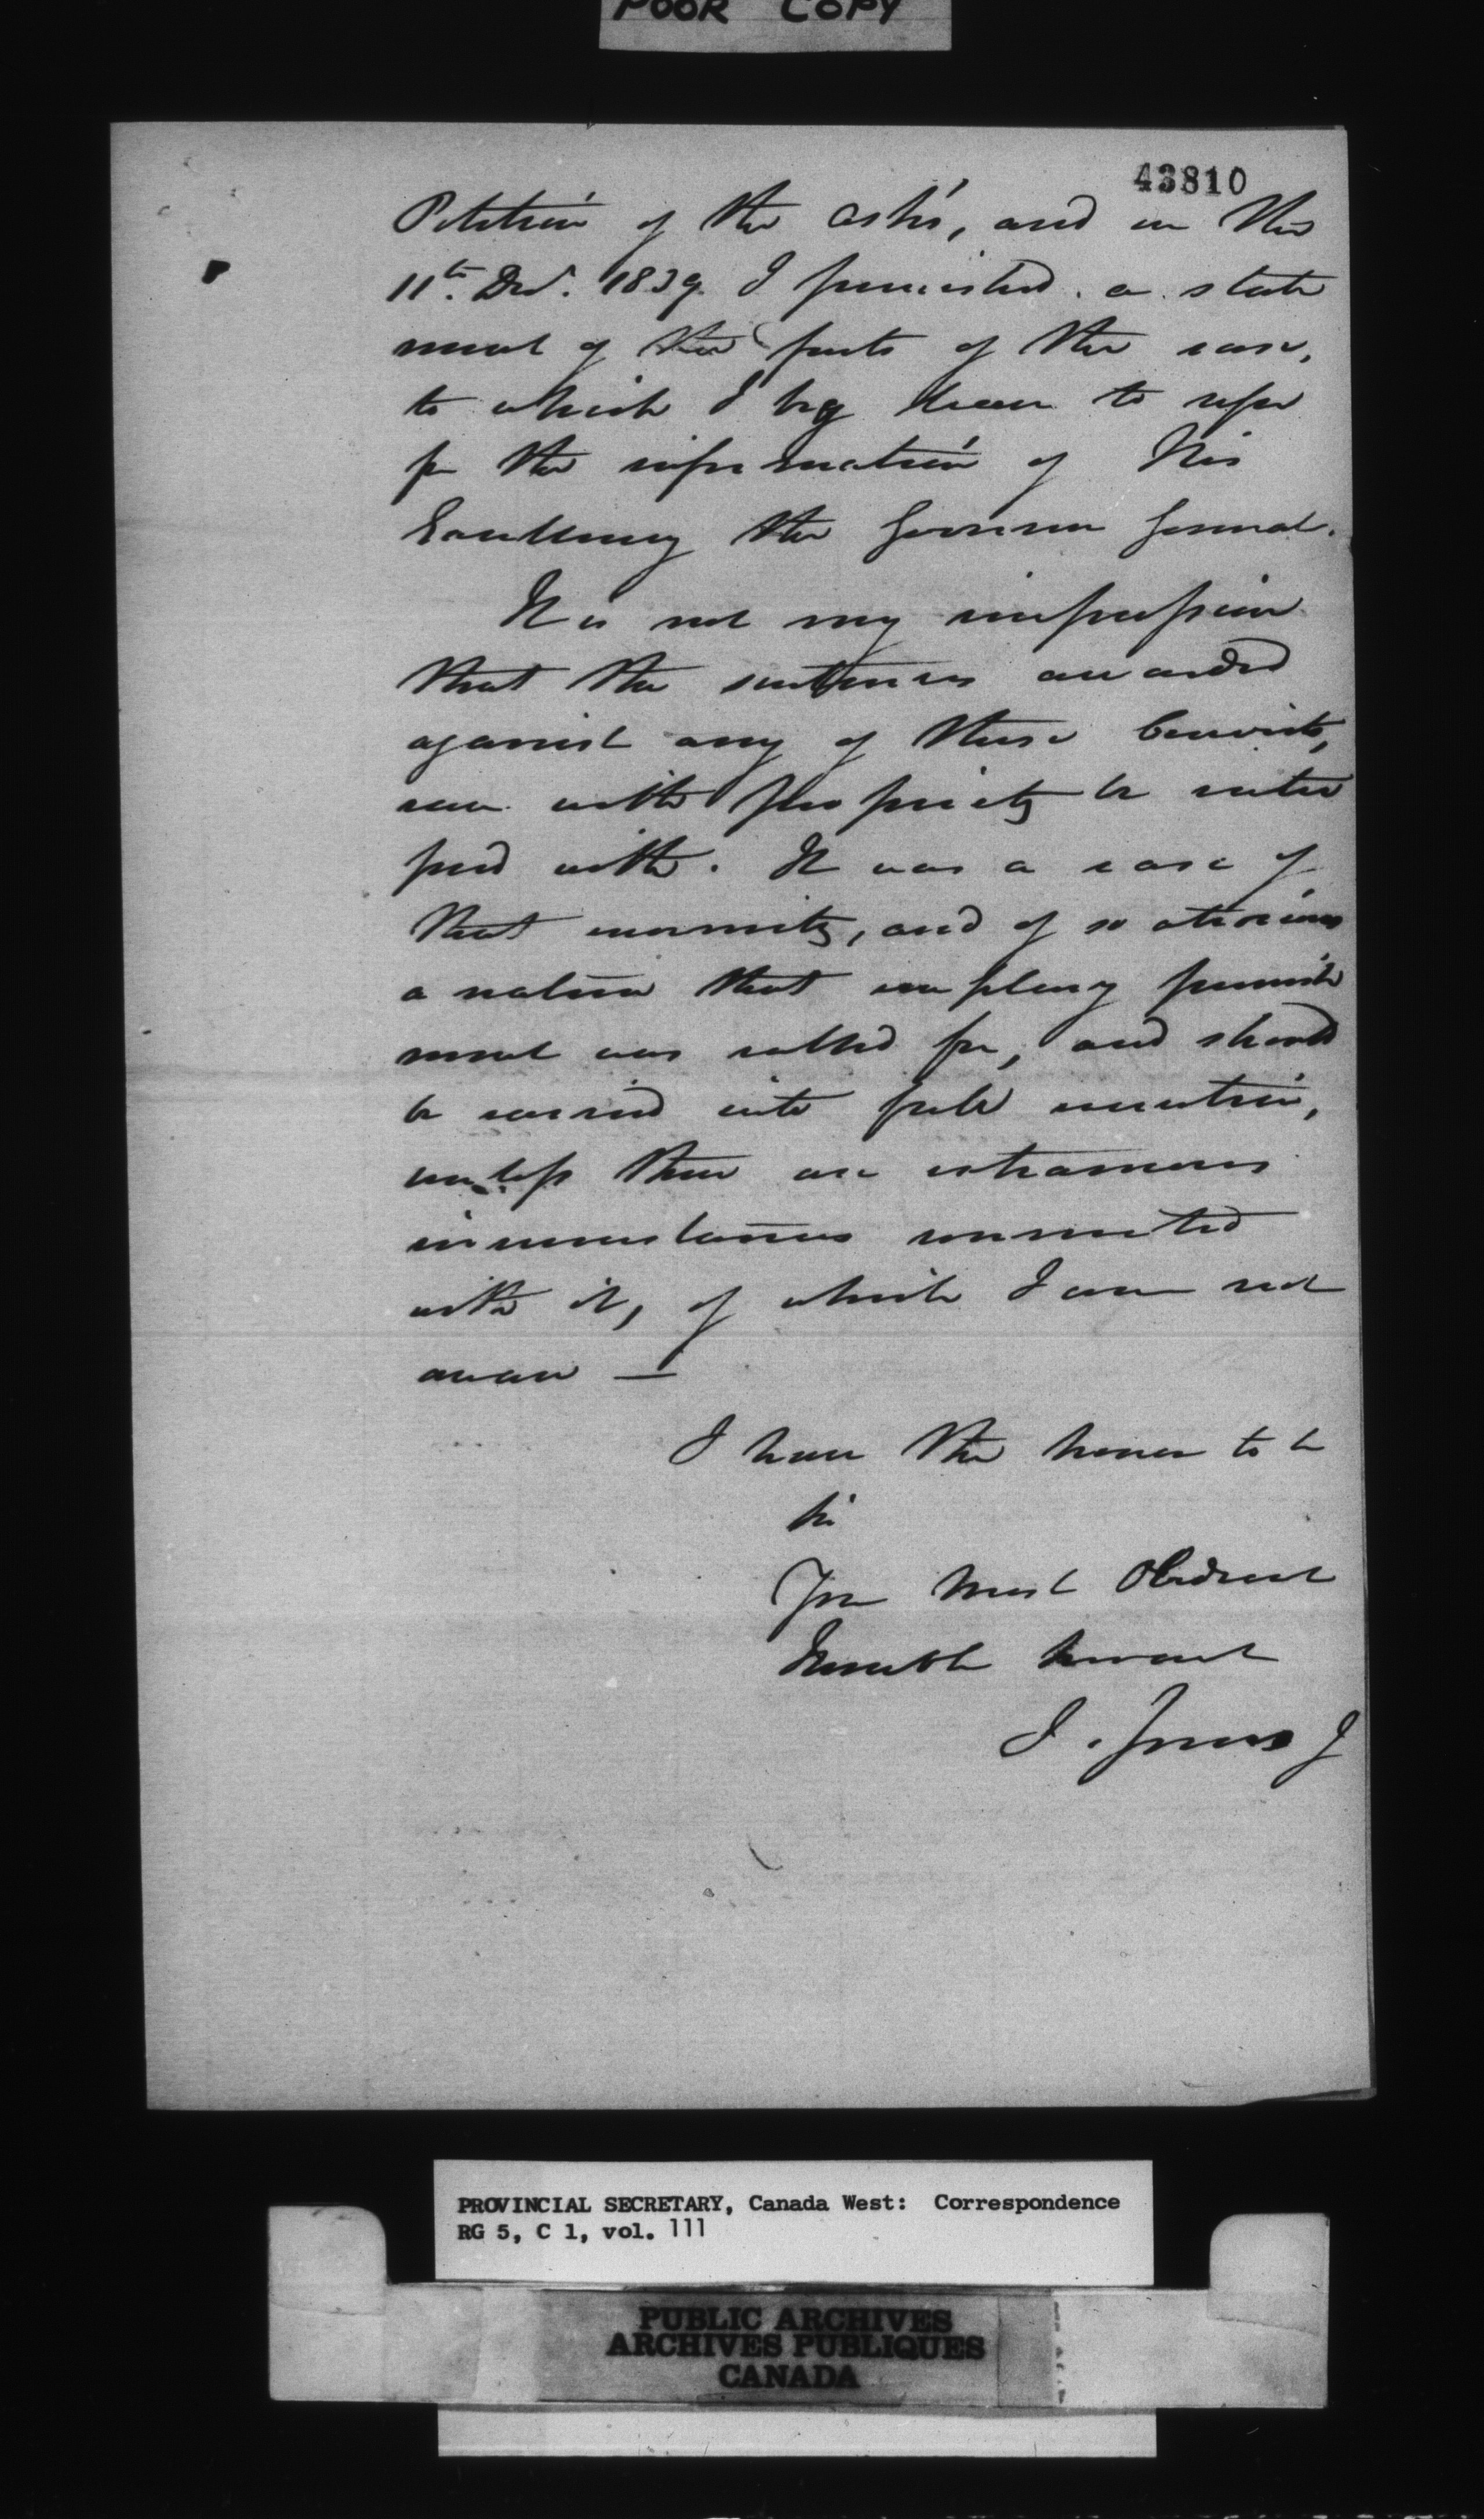 POOR COPY
43810
Petition of the Ash's, and on the
11th. Decr. 1839. I furnished a state
ment of the facts of the case,
to which I beg leave to refer
for the information of His
Excellency the Governor General.
It is not my impression
that the sentences awarded
against any of these Convicts,
can with propriety be inter
fered with. It was a case of
that enormity, and of so atrocious
a nature that exemplary punish
ment was called for, and should
be carried into full execution,
unless there are extraneous
circumstances connected
with it, of which I am not
aware —
I have the honor to be
Sir
Your Most Obedient
Humble Servant
J. Jones J
PROVINCIAL SECRETARY, Canada West: Correspondence
RG 5, C 1, vol. 111
PUBLIC ARCHIVES
ARCHIVES PUBLIQUES
CANADA